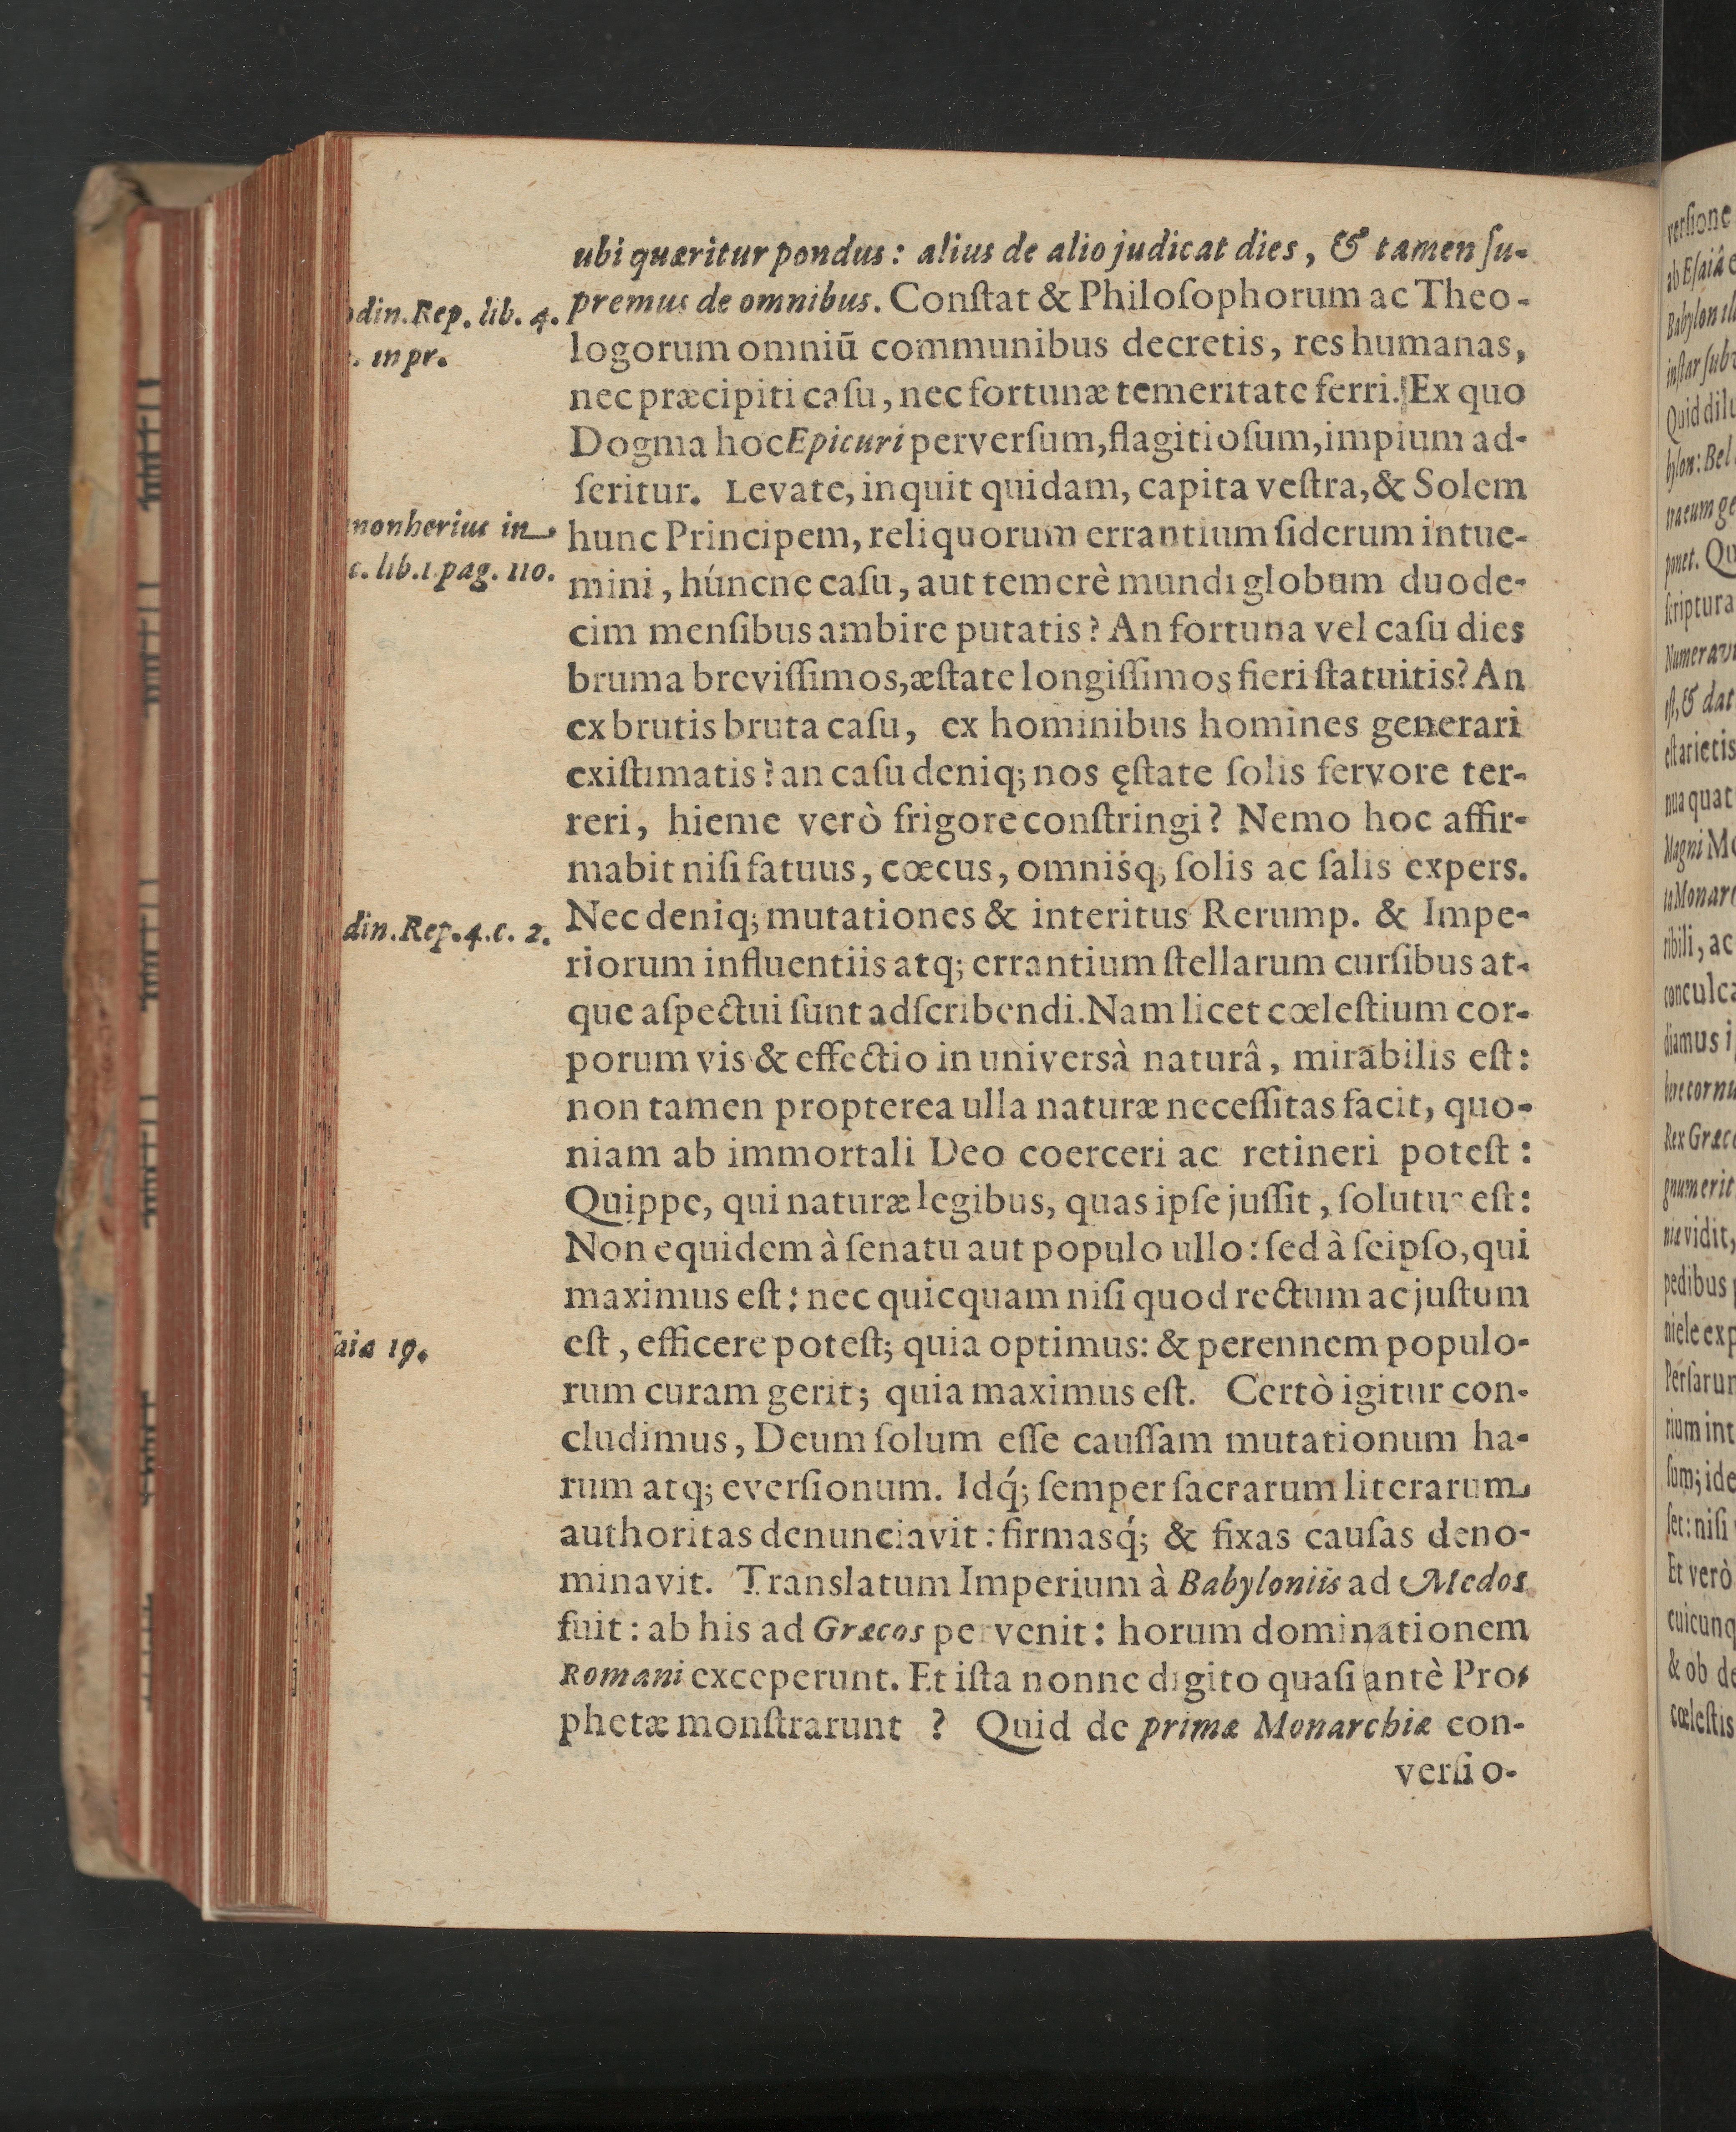 ubi quæritur pondus: alius de alio judicat dies, & tamen ſu-
premus de omnibus. Conſtat & Philoſophorum ac Theo-
logorum omniū communibus decretis, res humanas,
nec præcipiti caſu, nec fortunæ temeritate ferri. Ex quo
Dogma hoc Epicuri perverſum, flagitioſum, impium ad-
ſeritur. Levate, inquit quidam, capita veſtra, & Solem
hunc Principem, reliquorum errantium ſiderum intue-
mini, húncne caſu, aut temerè mundi globum duode-
cim menſibus ambire putatis? An fortuna vel caſu dies
bruma breviſſimos, æſtate longiſſimos fieri ſtatuitis? An
ex brutis bruta caſu, ex hominibus homines generari
exiſtimatis? an caſu deniq; nos ęſtate ſolis fervore ter-
reri, hieme verò frigore conſtringi? Nemo hoc affir-
mabit niſi fatuus, cœcus, omniśq; ſolis ac ſalis expers.
Nec deniq; mutationes & interitus Rerump. & Impe-
riorum influentiis atq; errantium ſtellarum curſibus at-
que aſpectui ſunt adſcribendi. Nam licet cœleſtium cor-
porum vis & effectio in universà naturâ, mirabilis eſt:
non tamen propterea ulla naturæ neceſſitas facit, quo-
niam ab immortali Deo coerceri ac retineri poteſt:
Quippe, qui naturæ legibus, quas ipſe juſſit, ſolutus eſt:
Non equidem à ſenatu aut populo ullo: ſed à ſeipſo, qui
maximus eſt: nec quicquam niſi quod rectum ac juſtum
eſt, efficere poteſt; quia optimus: & perennem populo-
rum curam gerit; quia maximus eſt. Certò igitur con-
cludimus, Deum ſolum eſſe cauſſam mutationum ha-
rum atq; everſionum. Idq́; ſemper ſacrarum literarum
authoritas denunciavit: firmasq́; & fixas cauſas deno-
minavit. Translatum Imperium à Babyloniis ad Medos
fuit: ab his ad Græcos pervenit: horum dominationem
Romani exceperunt. Et iſta nonne digito quaſi antè Pro-
phetæ monſtrarunt ? Quid de primæ Monarchiæ con-
verſio-
din. Rep. lib. 4.
in pr.
nonherius in
c. lib. 1 pag. 110.
din. Rep. 4. c. 2.
ſaiæ 19.
verſione
ab Eſaiâ
Babylon
inſtar
Quid
bylon: Bel
ponet.
ſcriptura
eſt, & dat
eſt arietis
nua quat
Magni
ribili, ac
conculca
diamus
bere cornu
Rex Græc
gnum erit
vidit,
pedibus
niele exp
Perſarum
rium int
ſum; ide
ſet: niſi
Et verò
cuicunq
& ob de
cœleſtis